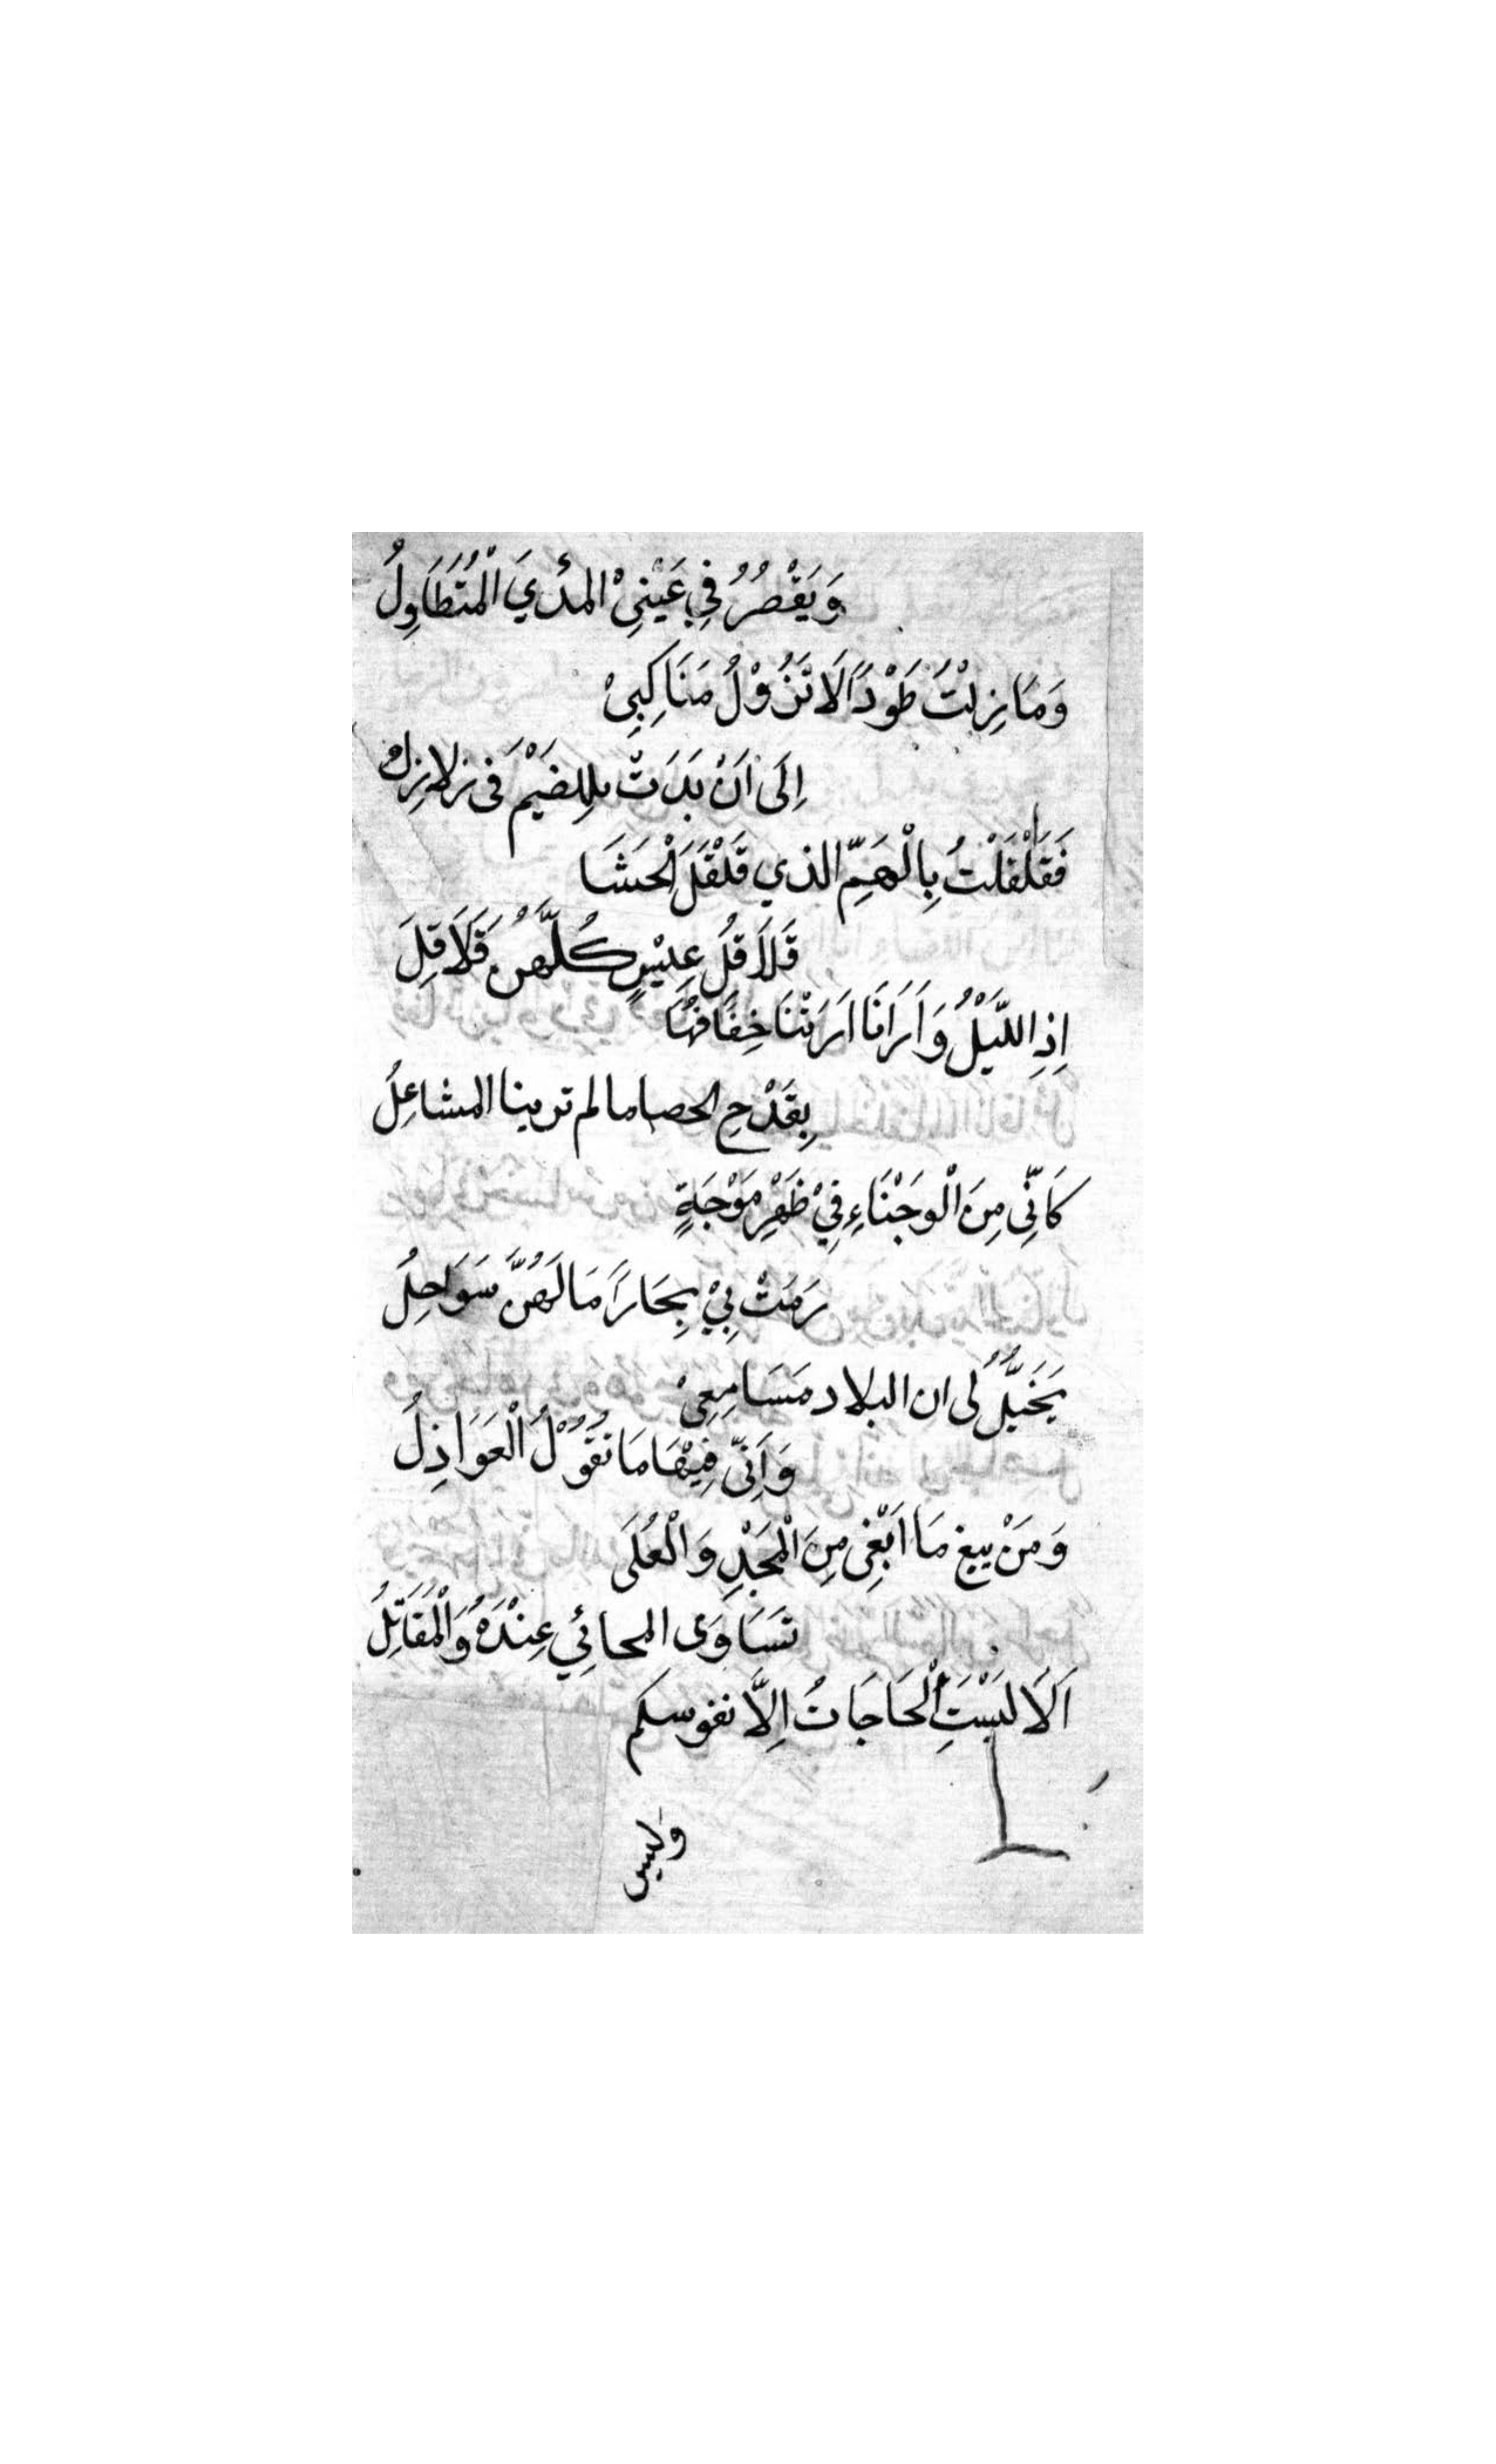 وَيَقْصُرُ فِي عَيْنِيْ المدٔيَ الْمُتَطَاوِلُ
وَمَا زِلْتُ طَوْدًا لَا تَزُوْلُ مَنَاكِبِيْ
اِلَى اَنْ بَدَتْ لِلِضَيْمَ فى زلازِلُ
فَقَلْقَلْتُ بِالْهَمِّ الذي قَلْقَلَ الْحَشَا
قَلَاقُلَ عِيْسٍ كُلَّهُنَ قَلَاقِلَ
اِذِ اللَّيْلُ وَاَرَانَا اَرَتْنَا خِفَافُهَا
بِقَدْحِ الحصا ما لم ترينا المشاعِلُ
كَانِّى مِنَ الْوَجْنَاءِ فِيْ ظَهْرِ مَوْجَةٍ
رَمَتْ بِيْ بِحَارًا مَا لَهُنَّ سَوَاحِلُ
يَخَيَّلُ لى ان البلاد مَسَامِعِيْ
وَاَنِّى فِيْهَا مَا تَقُوْلُ الْعَوَاذِلُ
وَمَنْ يبغ مَا اَبْغِى مِنَ الْمَجْدِ وَالْعُلَى
تَسَاوَى المحائِي عِنْدَهُ وَالْمَقَاتِلُ
اَلَا لَيْسَتِ الْحَاجَاتُ اِلَّا نفوسكم
وليس